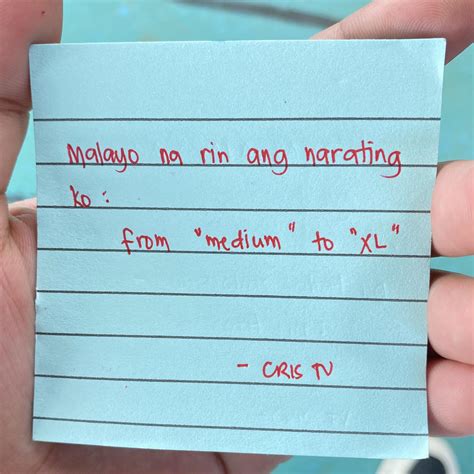 Malayo na rin ang narating
ko :
from "medium" to "XL"
- CRIS TV